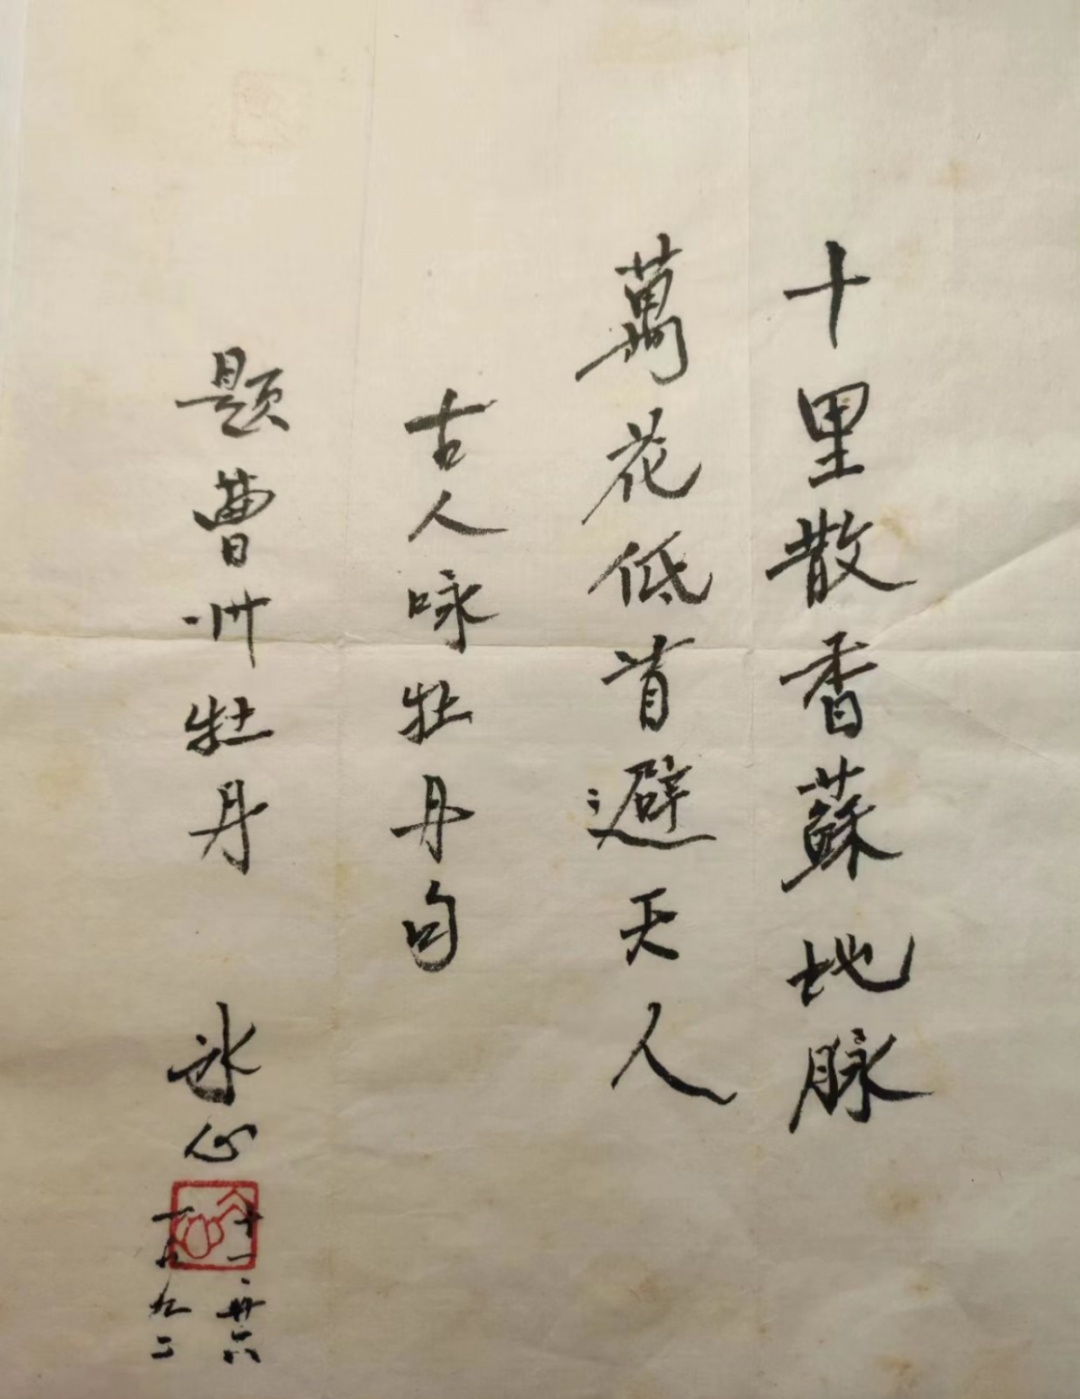 十里散香蘇地脉
萬花低首避天人
古人咏牡丹句
题曹州牡丹 冰心
十一、廿六
一九九二